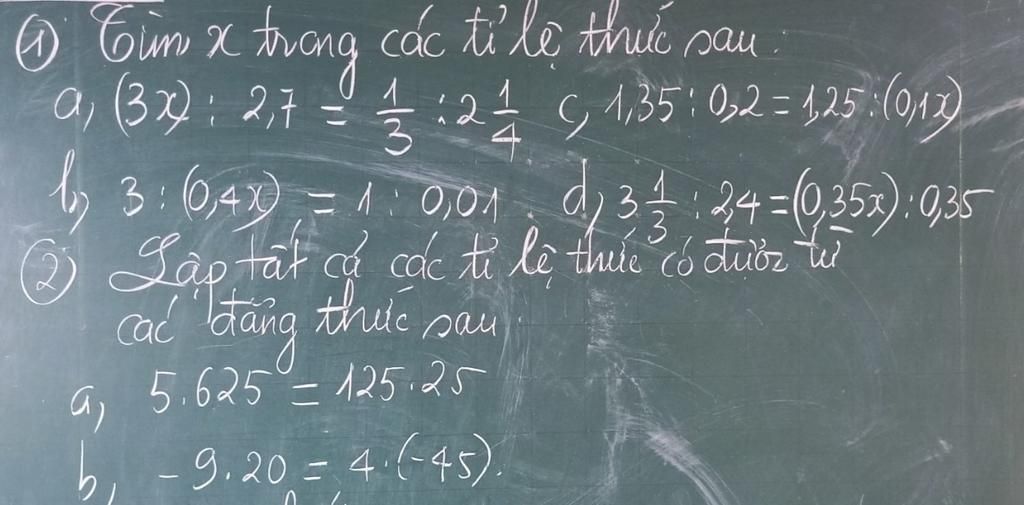 ① Tìm x trong các tỉ lệ thức sau:
a, (3x) : 2,7 = 1/3 : 2 1/4 c, 1,35 : 0,2 = 1,25 : (0,1x)
b, 3 : (0,4x) = 1 : 0,01 d, 3 1/3 : 2,4 = (0,35x) : 0,35
② Lập tất cả các tỉ lệ thức có được từ
các đẳng thức sau:
a, 5.625 = 125.25
b, -9.20 = 4.(-45).